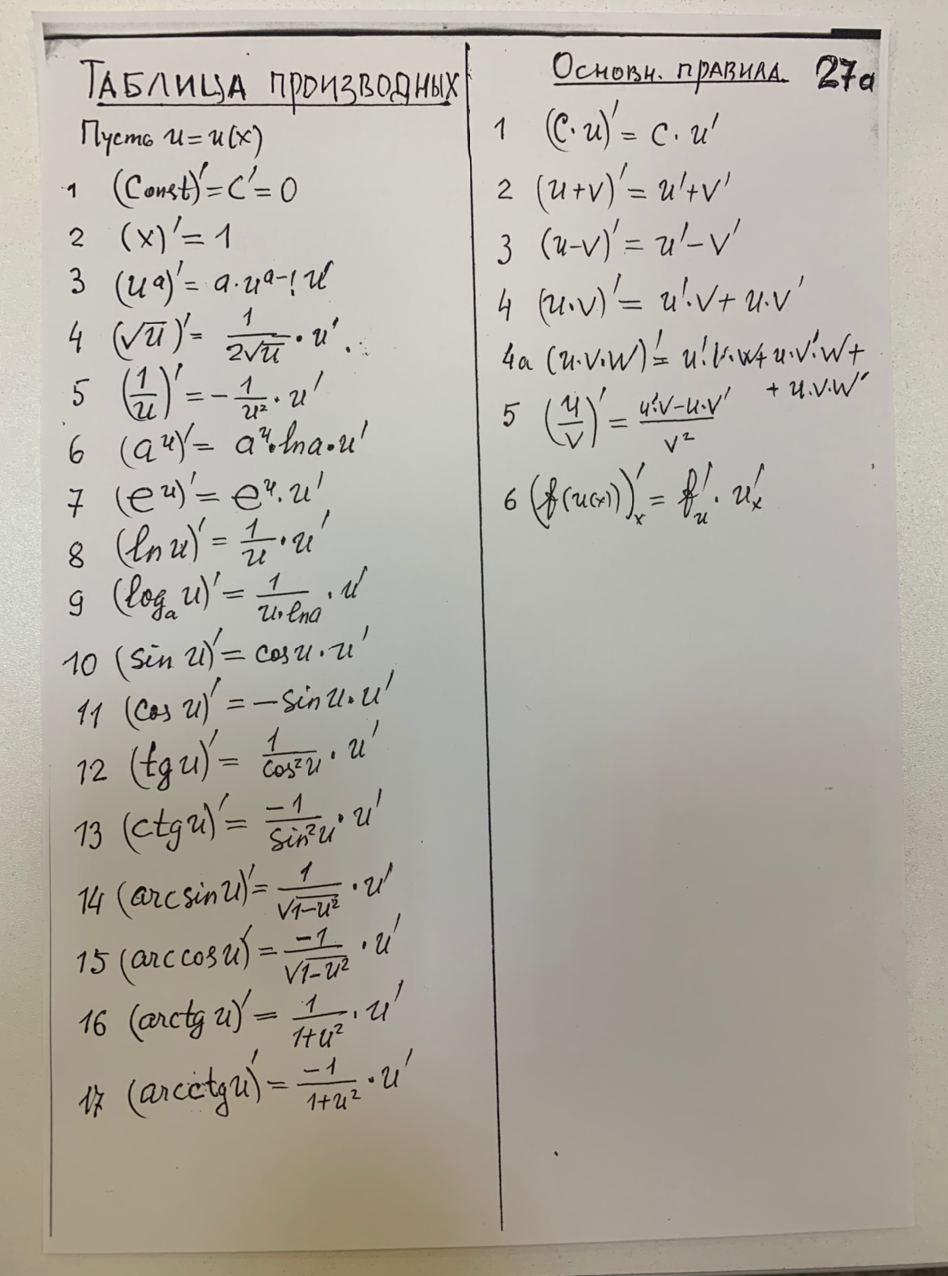 ТАБЛИЦА ПРОИЗВОДНЫХ
Пусть u=u(x)
1 (Const)'=C'=0
2 (x)'=1
3 (u^a)'=a·u^(a-1)·u'
4 (√u)'=1/(2√u)·u'
5 (1/u)'=-1/u²·u'
6 (a^u)'=a^u·lna·u'
7 (e^u)'=e^u·u'
8 (ln u)'=1/u·u'
9 (log_a u)'=1/(u·lna)·u'
10 (sin u)'=cosu·u'
11 (cos u)'=-sinu·u'
12 (tg u)'=1/cos²u·u'
13 (ctg u)'=-1/sin²u·u'
14 (arcsin u)'=1/√(1-u²)·u'
15 (arccos u)'=-1/√(1-u²)·u'
16 (arctg u)'=1/(1+u²)·u'
17 (arcctg u)'=-1/(1+u²)·u'
Основн. правила. 27а
1 (C·u)'=C·u'
2 (u+v)'=u'+v'
3 (u-v)'=u'-v'
4 (u·v)'=u'·v+u·v'
4а (u·v·w)'=u'·v·w+u·v'·w+
+u·v·w'
5 (u/v)'=(u'·v-u·v')/v²
6 (f(u(x)))'_x=f'_u·u'_x